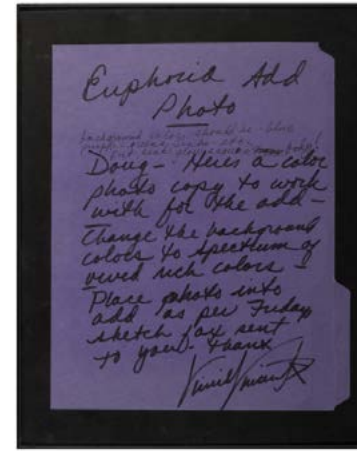 Euphoria Add
Photo
background colors should be - blue
purple - green
Doug - Here's a color
photo copy to work
with for the add -
Change the background
colors to spectrum of
vivid rich colors -
Place photo into
add as per Friday
sketch fax sent
to you. Thank